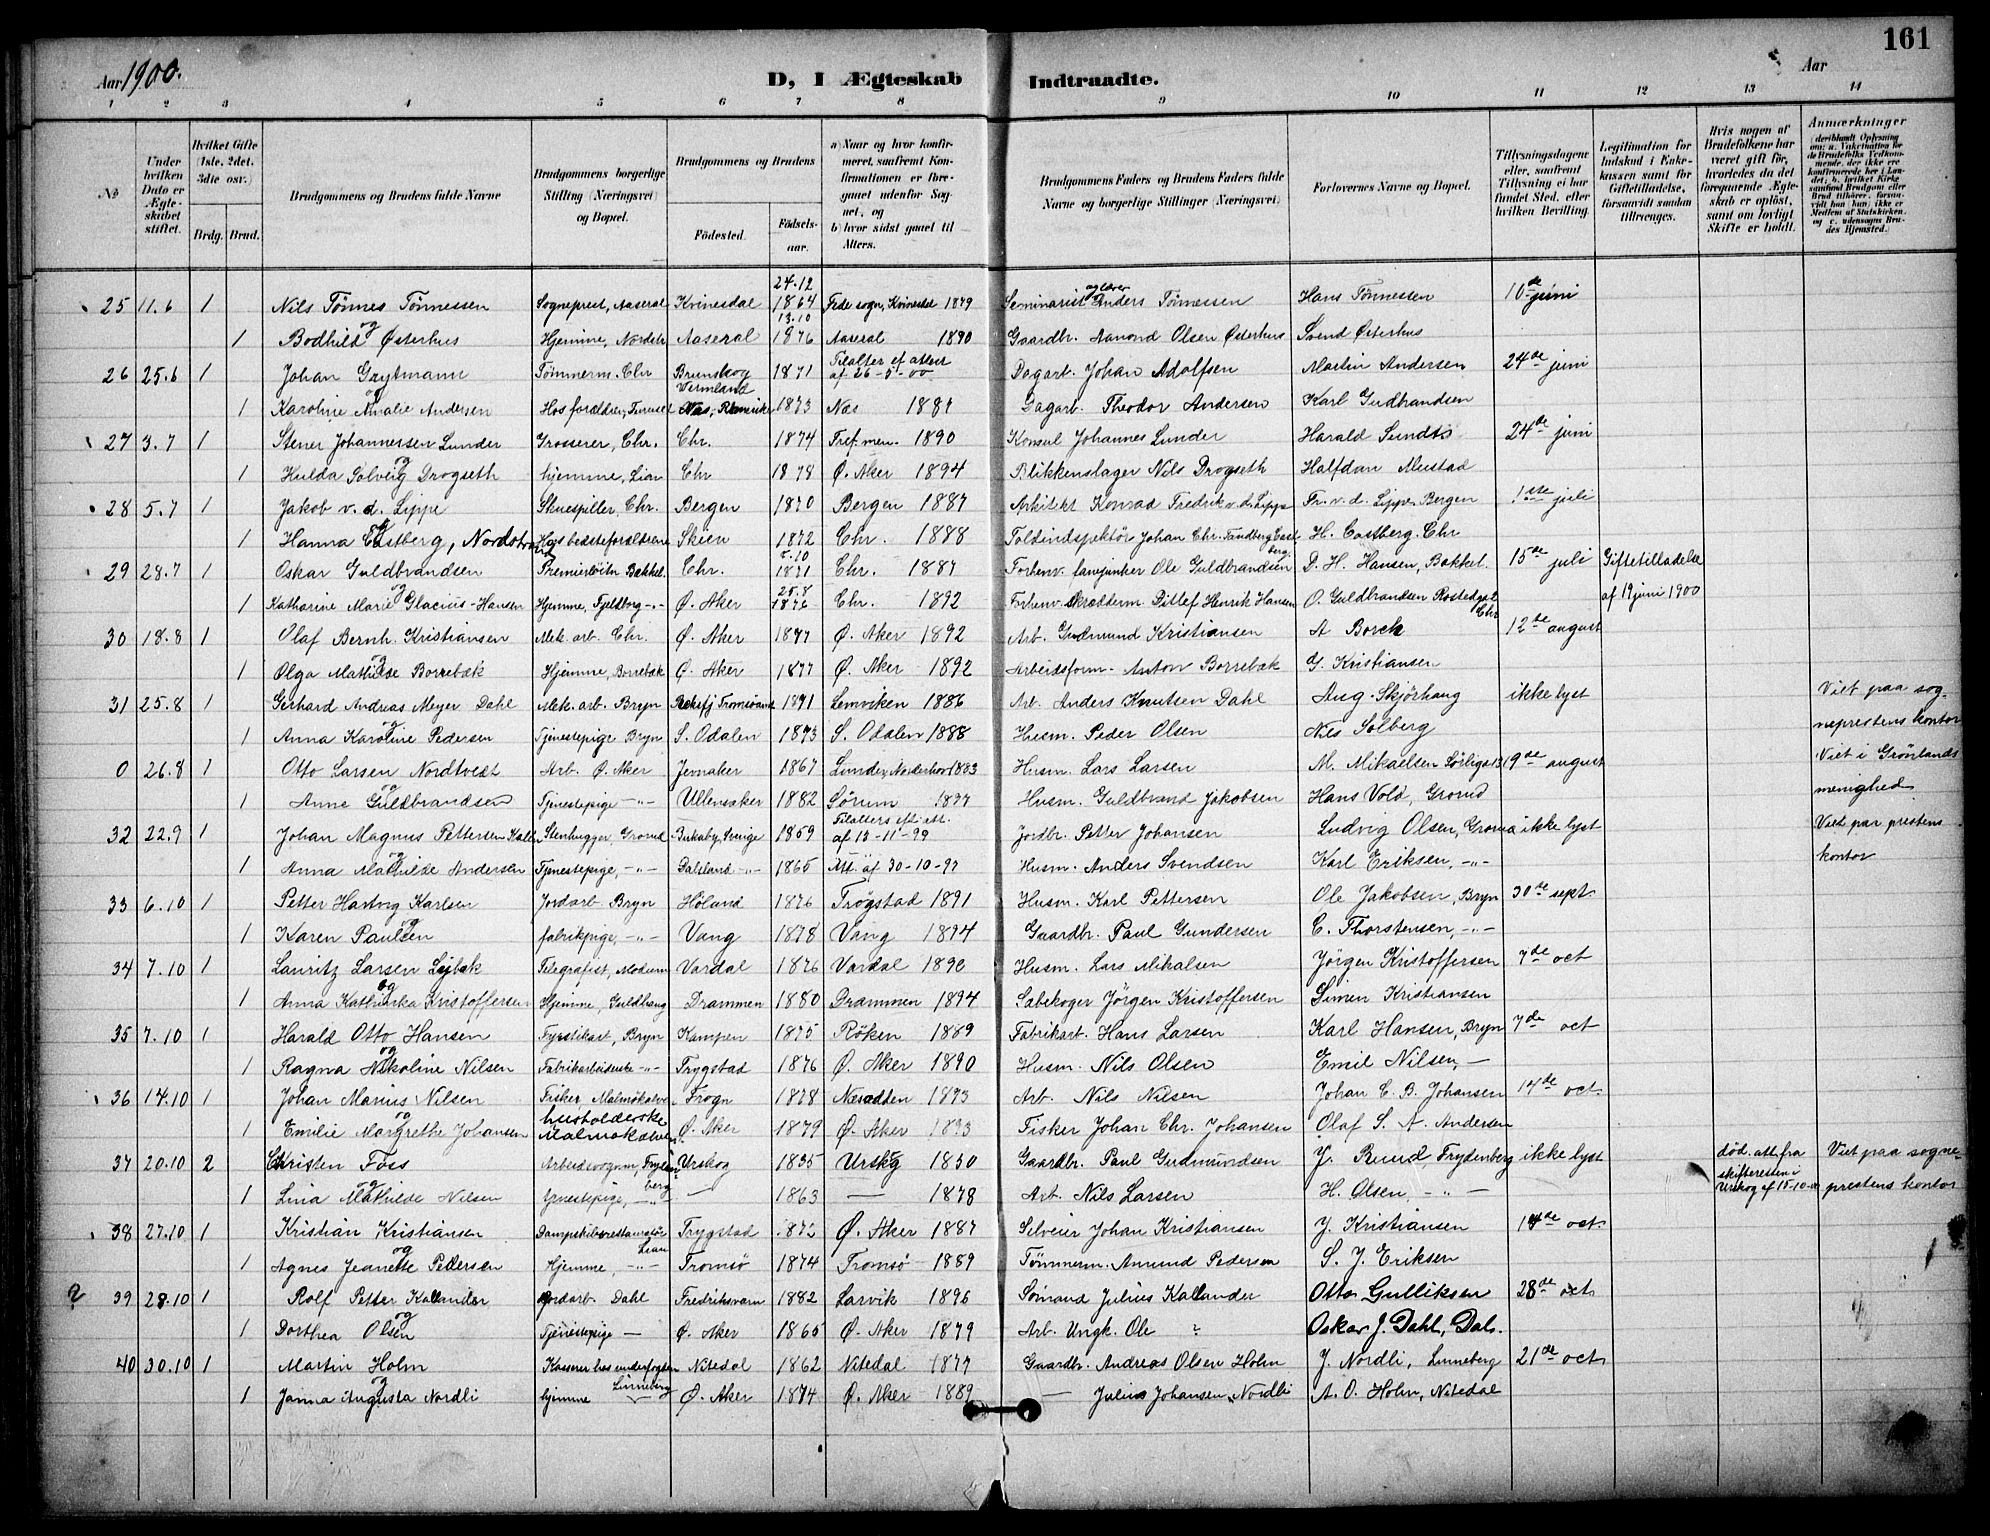 161
Aar 1900.
D, I Ægteskab Indtraadte.
Aar
1 2 3 4 5 6 7 8 9 10 11 12 13 14
№
Under hvilken Dato er Ægteskabet stiftet.
Hvilket Gifte (1ste, 2det, 3die osv.)
Brdg. Brud.
Brudgommens og Brudens fulde Navne
Brudgommens borgerlige Stilling (Næringsvei) og Bopæl.
Brudgommens og Brudens
Fødested.
Fødselsaar.
a) Naar og hvor konfirmeret, saafremt Konfirmationen er foregaaet udenfor Sognet, og
b) hvor sidst gaaet til Alters.
Brudgommens Faders og Brudens Faders fulde Navne og borgerlige Stillinger (Næringsvei)
Forlovernes Navne og Bopæl.
Tillysningsdagene eller, saafremt Tillysning ei har fundet Sted, efter hvilken Bevilling.
Legitimation for Indskud i Enkekassen samt for Giftetilladelse, forsaavidt saadan tiltrænges.
Hvis nogen af Brudefolkene har været gift før, hvorledes da det foregaaende Ægteskab er opløst, samt om lovligt Skifte er holdt.
Anmærkninger (deriblandt Oplysning om: a. Vakcination for de Brudefolks Vedkommende, der ikke ere konfirmerede her i Landet; b. hvilket Kirkesamfund Brudgom eller Brud tilhører, forsaavidt han (hun) ikke er Medlem af Statskirken, og c. udensogns Brudes Hjemsted.)
25 11.6 1 Nils Tönnes Tönnessen Sogneprest, Aaseral Kvinesdal 24.12 1864 Fede sogn, Kvinesdal 1879 Seminarist og lærer Anders Tönnessen Hans Tönnessen 10de juni
og 1 Bodhild Østerhus Hjemme, Nordstr 13.10 Aaseral 1876 Aaseral 1890 Gaardbr. Aanond Olsen Østerhus Svend Østerhus
26 25.6 1 Johan Gaytmann Tömmerm. Chr Brunskog Vermland 1871 Tilalter ef attest af 26-5-00 Dagarb. Johan Adolfsen Martin Andersen 24de juni
og 1 Karoline Amalie Andersen Hos forældre, Furuset Næs, Romerike 1873 Næs 1887 Dagarb. Theodor Andersen Karl Gudbrandsen
27 3.7 1 Stener Johannessen Lunder Grosserer, Chr. Chr. 1874 Tref. men. 1890 Konsul Johannes Lunder Harald Sundts 24de juni
og 1 Hulda Solveig Drogseth hjemme, Lian Chr 1878 Ø. Aker 1894 Blikkenslager Nils Drogseth Halfdan Mustad
28 5.7 1 Jakob v. d. Lippe Skuespiller, Chr. Bergen 1870 Bergen 1887 Arkitekt Konrad Fredrik v. d. Lippe Fr. v. d. Lippe Bergen 1ste juli
og 1 Hanna Castberg, Nordstrand Hos bedsteforældrene Skien 1872 Chr. 1888 Toldindspektör Johan Chr. Tandberg Castberg. H. Castberg. Chr
29 28.7 1 Oskar Guldbrandsen Premierlöitn Bækkel. Chr. 5.10 1871 Chr. 1887 Forhenv. fanejunker Ole Guldbrandsen D. H. Hansen, Bækkel. 15de juli Giftetilladelse
og 1 Katharine Marie Glacius-Hansen Hjemme, Fjeldborg -"- Ø. Aker 25.8 1876 Chr. 1892 Forhenv. skrædderm. Ditlef Henrik Hansen O. Guldbrandsen Rostedgt 2 Chr af 19 juni 1900
30 18.8 1 Olaf Bernh. Kristiansen Mek. arb. Chr. Ø. Aker 1877 Ø. Aker 1892 Arb. Gudmund Kristiansen A Borch 12de august
og 1 Olga Mathilde Borrebæk Hjemme, Borrebæk Ø. Aker 1877 Ø. Aker 1892 Arbeidsform. Anton Borrebæk G. Kristiansen
31 25.8 1 Gerhard Andreas Meyer Dahl Mek. arb. Bryn Tromsösund 1871 Lenviken 1886 Arb. Anders Knutsen Dahl Aug. Skjörhaug ikke lyst Viet paa sog-
og 1 Anna Karoline Pedersen Tjenestepige Bryn S. Odalen 1873 S. Odalen 1888 Husm. Peder Olsen Nils Solberg neprestens kontor
0 26.8 1 Otto Larsen Nordtvedt Arb. Ø. Aker Jevnaker 1867 Lunder, Norderhov 1883 Husm. Lars Larsen M. Mikaelsen Sörliga 13 19de august Viet i Grönlands
og 1 Anne Guldbrandsen Tjenestepige -"- Ullensaker 1882 Sörum 1897 Husm. Guldbrand Jakobsen Hans Vold, Grorud menighed
32 22.9 1 Johan Magnus Pettersen Stenhugger, Grorud Sverige 1859 Tilalters eft att. af 13-11-99 Jordbr. Petter Johansen Ludvig Olsen, Grorud ikke lyst Viet paa prestens
og 1 Anna Mathilde Andersen Tjenestepige, -"- Dalsland -"- 1865 Att. af 30-10-97 Husm. Anders Svendsen Karl Eriksen, -"- kontor
33 6.10 1 Petter Hartvig Karlsen Jordarb Bryn Höland 1876 Trøgstad 1891 Husm. Karl Pettersen Ole Jakobsen, Bryn 30de sept.
og 1 Karen Paulsen fabrikpige, -"- Vang 1878 Vang 1894 Gaardbr. Paul Gundersen C. Thorstensen, -"-
34 7.10 1 Lauritz Larsen Telegrafist, Modum Vardal 1876 Vardal 1890 Husm. Lars Mikalsen Jörgen Kristoffersen 7de oct
og 1 Anna Kathinka Kristoffersen Hjemme, Guldhaug Drammen 1880 Drammen 1894 Sæbekoger Jörgen Kristoffersen Simen Kristiansen
35 7.10 1 Harald Otto Hansen Fyrstikarb, Bryn Kampen 1875 Röken 1889 Fabrikarb. Hans Larsen Karl Hansen, Bryn 7de oct
og 1 Ragna Nikoline Nilsen Fabrikarbeiderske -"- Trygstad 1876 Ø. Aker 1890 Husm. Nils Olsen Emil Nilsen, -
36 14.10 1 Johan Marius Nilsen Fisker, Malmökalven Frogn 1878 Næsodden 1893 Arb. Nils Nilsen Johan C. B. Johansen 14de oct.
og 1 Emilie Margrethe Johansen husholderske Malmökalven Ø. Aker 1879 Ø. Aker 1893 Fisker Johan Chr. Johansen Olaf S. A. Andersen
37 20.10 2 Kristen Foss Arbeidsvognm, Frydenberg Urskog 1835 Urskog 1850 Gaardbr. Paul Gudmundsen J. Ruud, Frydenberg ikke lyst död. att. fra skifteretten i Urskog af 15-10-00 Viet paa sogne-
og 1 Lina Mathilde Nilsen Tjenestepige, -"- — 1863 — 1878 Arb. Nils Larsen H. Olsen, -"- prestens kontor
38 27.10 1 Kristian Kristiansen Dampskibsrestauratör Lian Trygstad 1872 Ø. Aker 1887 Selveier Johan Kristiansen J. Kristiansen 14de oct.
og 1 Agnes Jeanette Pedersen Hjemme, -"- Tromsö 1874 Tromsö 1889 Tömmerm. Amund Pedersen S. J. Eriksen
? 39 28.10 1 Rolf Petter Kallander Jordarb. Dahl Fredriksværn 1882 Larvik 1896 Sömand Julius Kallander Otto Gulliksen 28de oct
og 1 Dorthea Olsen Tjenestepige — Ø. Aker 1865 Ø. Aker 1879 Arb. Ungk. Ole ? Oskar J. Dahl, Dal.
40 30.10 1 Martin Holm Kasserer hos underfogden Linneberg Nitedal 1862 Nitedal 1877 Gaardbr. Andreas Olsen Holm J. Nordli, Linneberg 21de oct
og 1 Janna Augusta Nordli hjemme -"- Ø. Aker 1874 Ø. Aker 1889 — Julius Johansen Nordli A. O. Holm, Nitedal